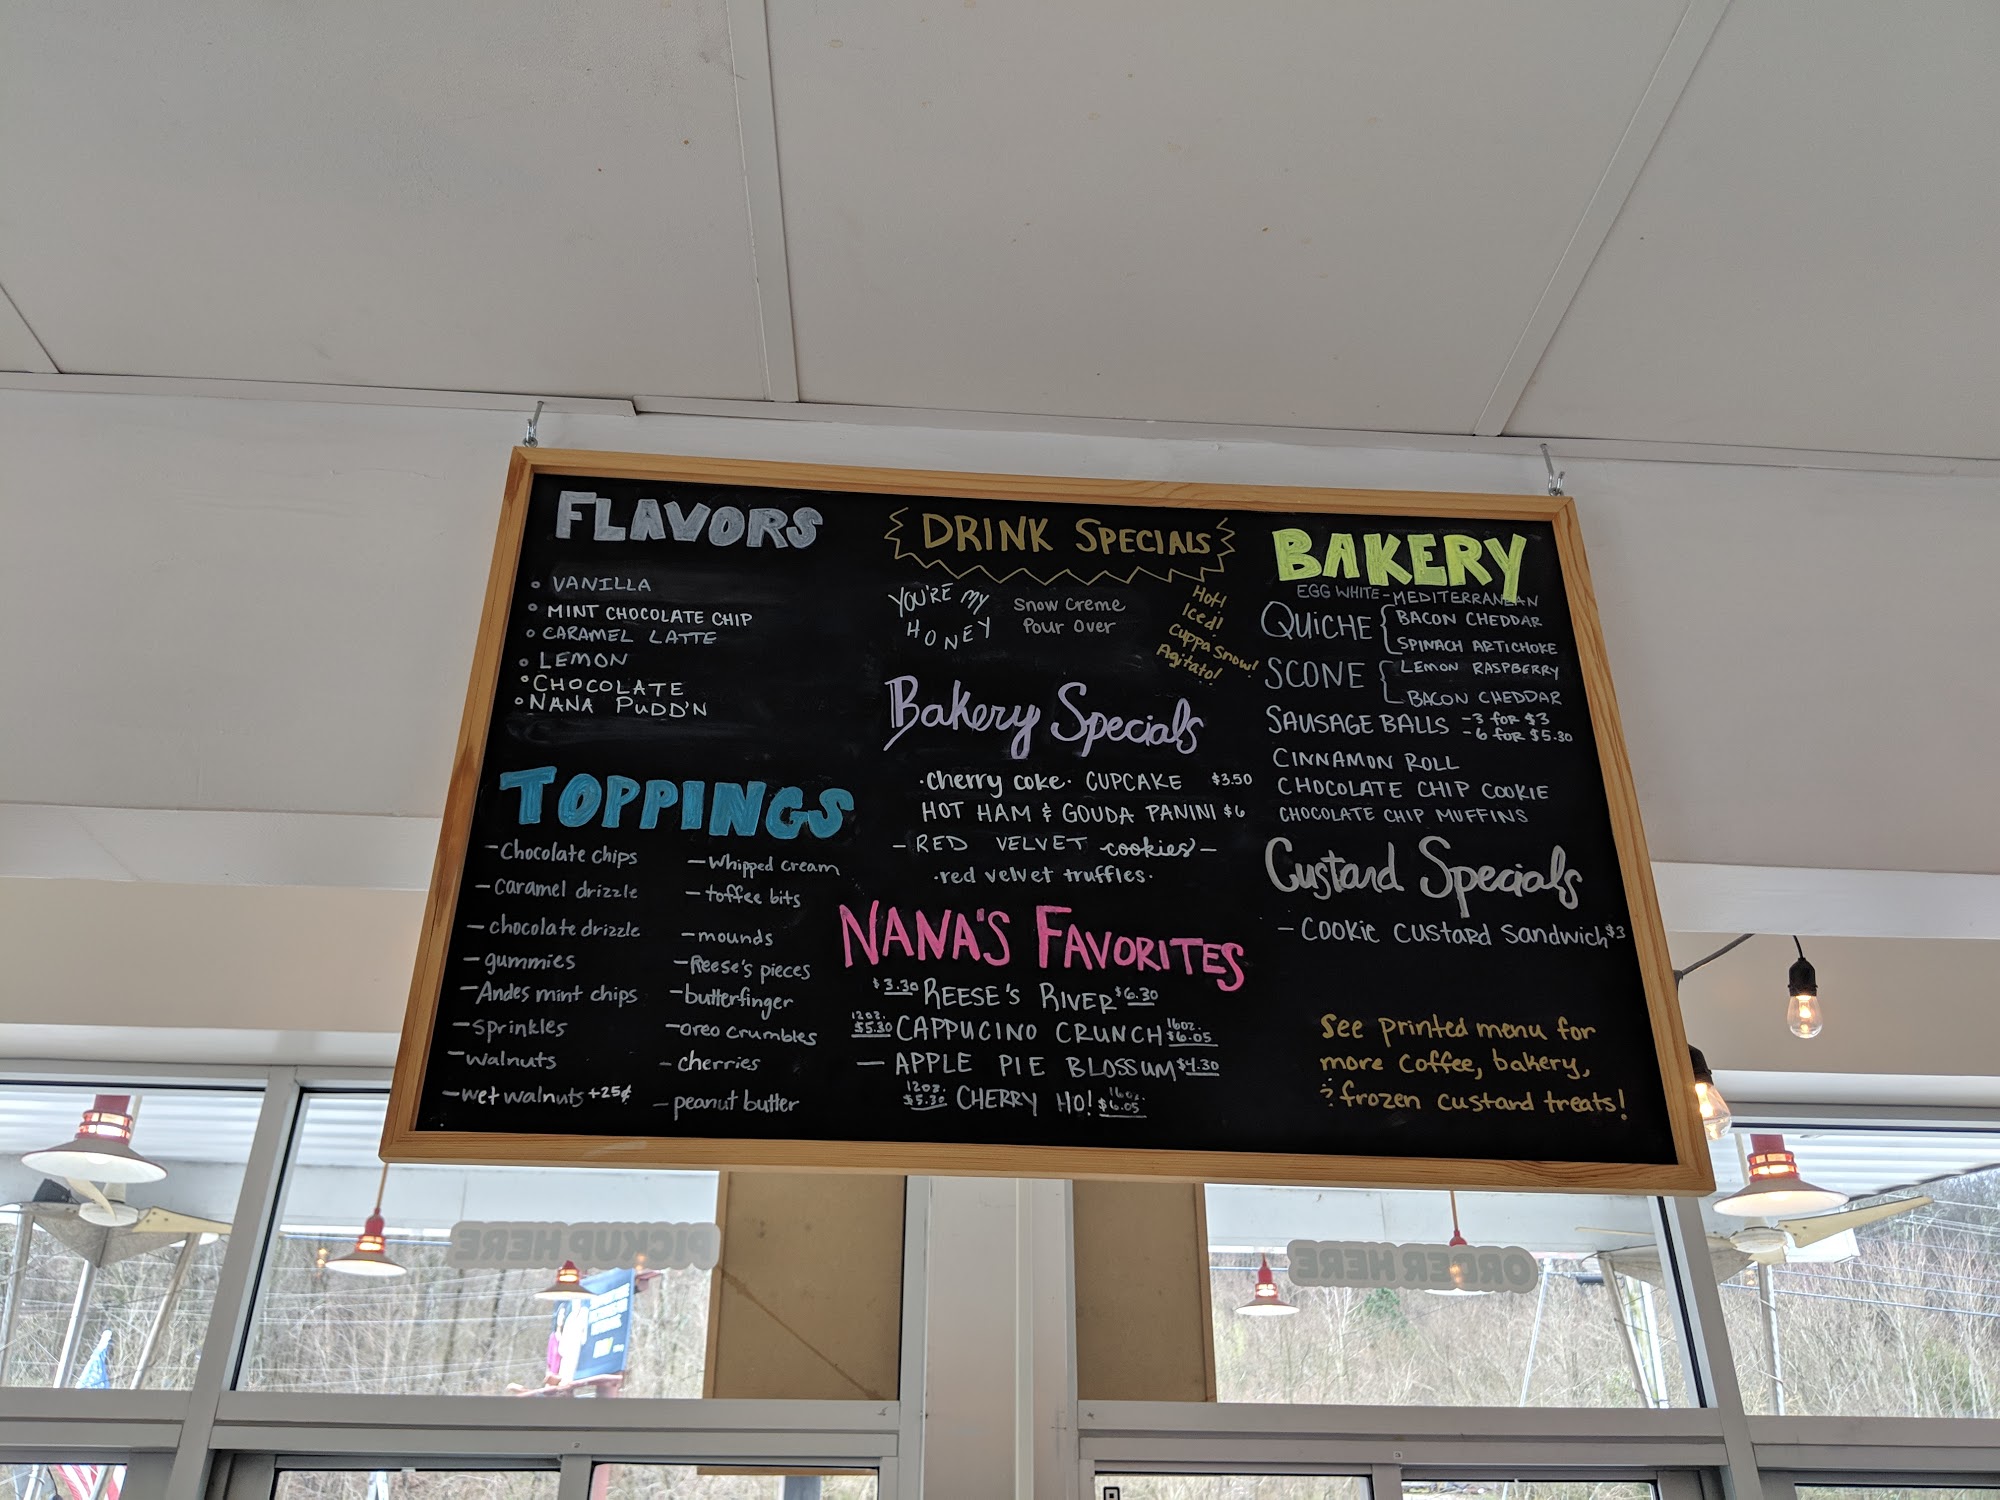 FLAVORS
VANILLA
MINT CHOCOLATE CHIP
CARAMEL LATTE
LEMON
CHOCOLATE
NANA PUDD'N
TOPPINGS
- Chocolate chips
- caramel drizzle
- chocolate drizzle
- gummies
- Andes mint chips
- sprinkles
- walnuts
- wet walnuts +25¢
- Whipped cream
- toffee bits
- mounds
- Reese's pieces
- butterfinger
- oreo crumbles
- cherries
- peanut butter
DRINK SPECIALS
YOU'RE MY
HONEY
Snow Creme
Pour Over
Hot!
Iced!
Cuppa Snow!
Agitato!
Bakery Specials
· cherry coke · CUPCAKE $3.50
HOT HAM & GOUDA PANINI $6
- RED VELVET cookies -
· red velvet truffles ·
NANA'S FAVORITES
$3.30 REESE'S RIVER $6.30
12oz. $5.30 CAPPUCINO CRUNCH 16oz. $6.05
- APPLE PIE BLOSSUM $4.30
12oz. $5.30 CHERRY HO! 16oz. $6.05
BAKERY
EGG WHITE-MEDITERRANEAN
QUICHE { BACON CHEDDAR
SPINACH ARTICHOKE
SCONE { LEMON RASPBERRY
BACON CHEDDAR
SAUSAGE BALLS - 3 for $3
- 6 for $5.30
CINNAMON ROLL
CHOCOLATE CHIP COOKIE
CHOCOLATE CHIP MUFFINS
Custard Specials
- COOKIE CUSTARD Sandwich $3
See printed menu for
more coffee, bakery,
& frozen custard treats!
PICKUP HERE
ORDER HERE